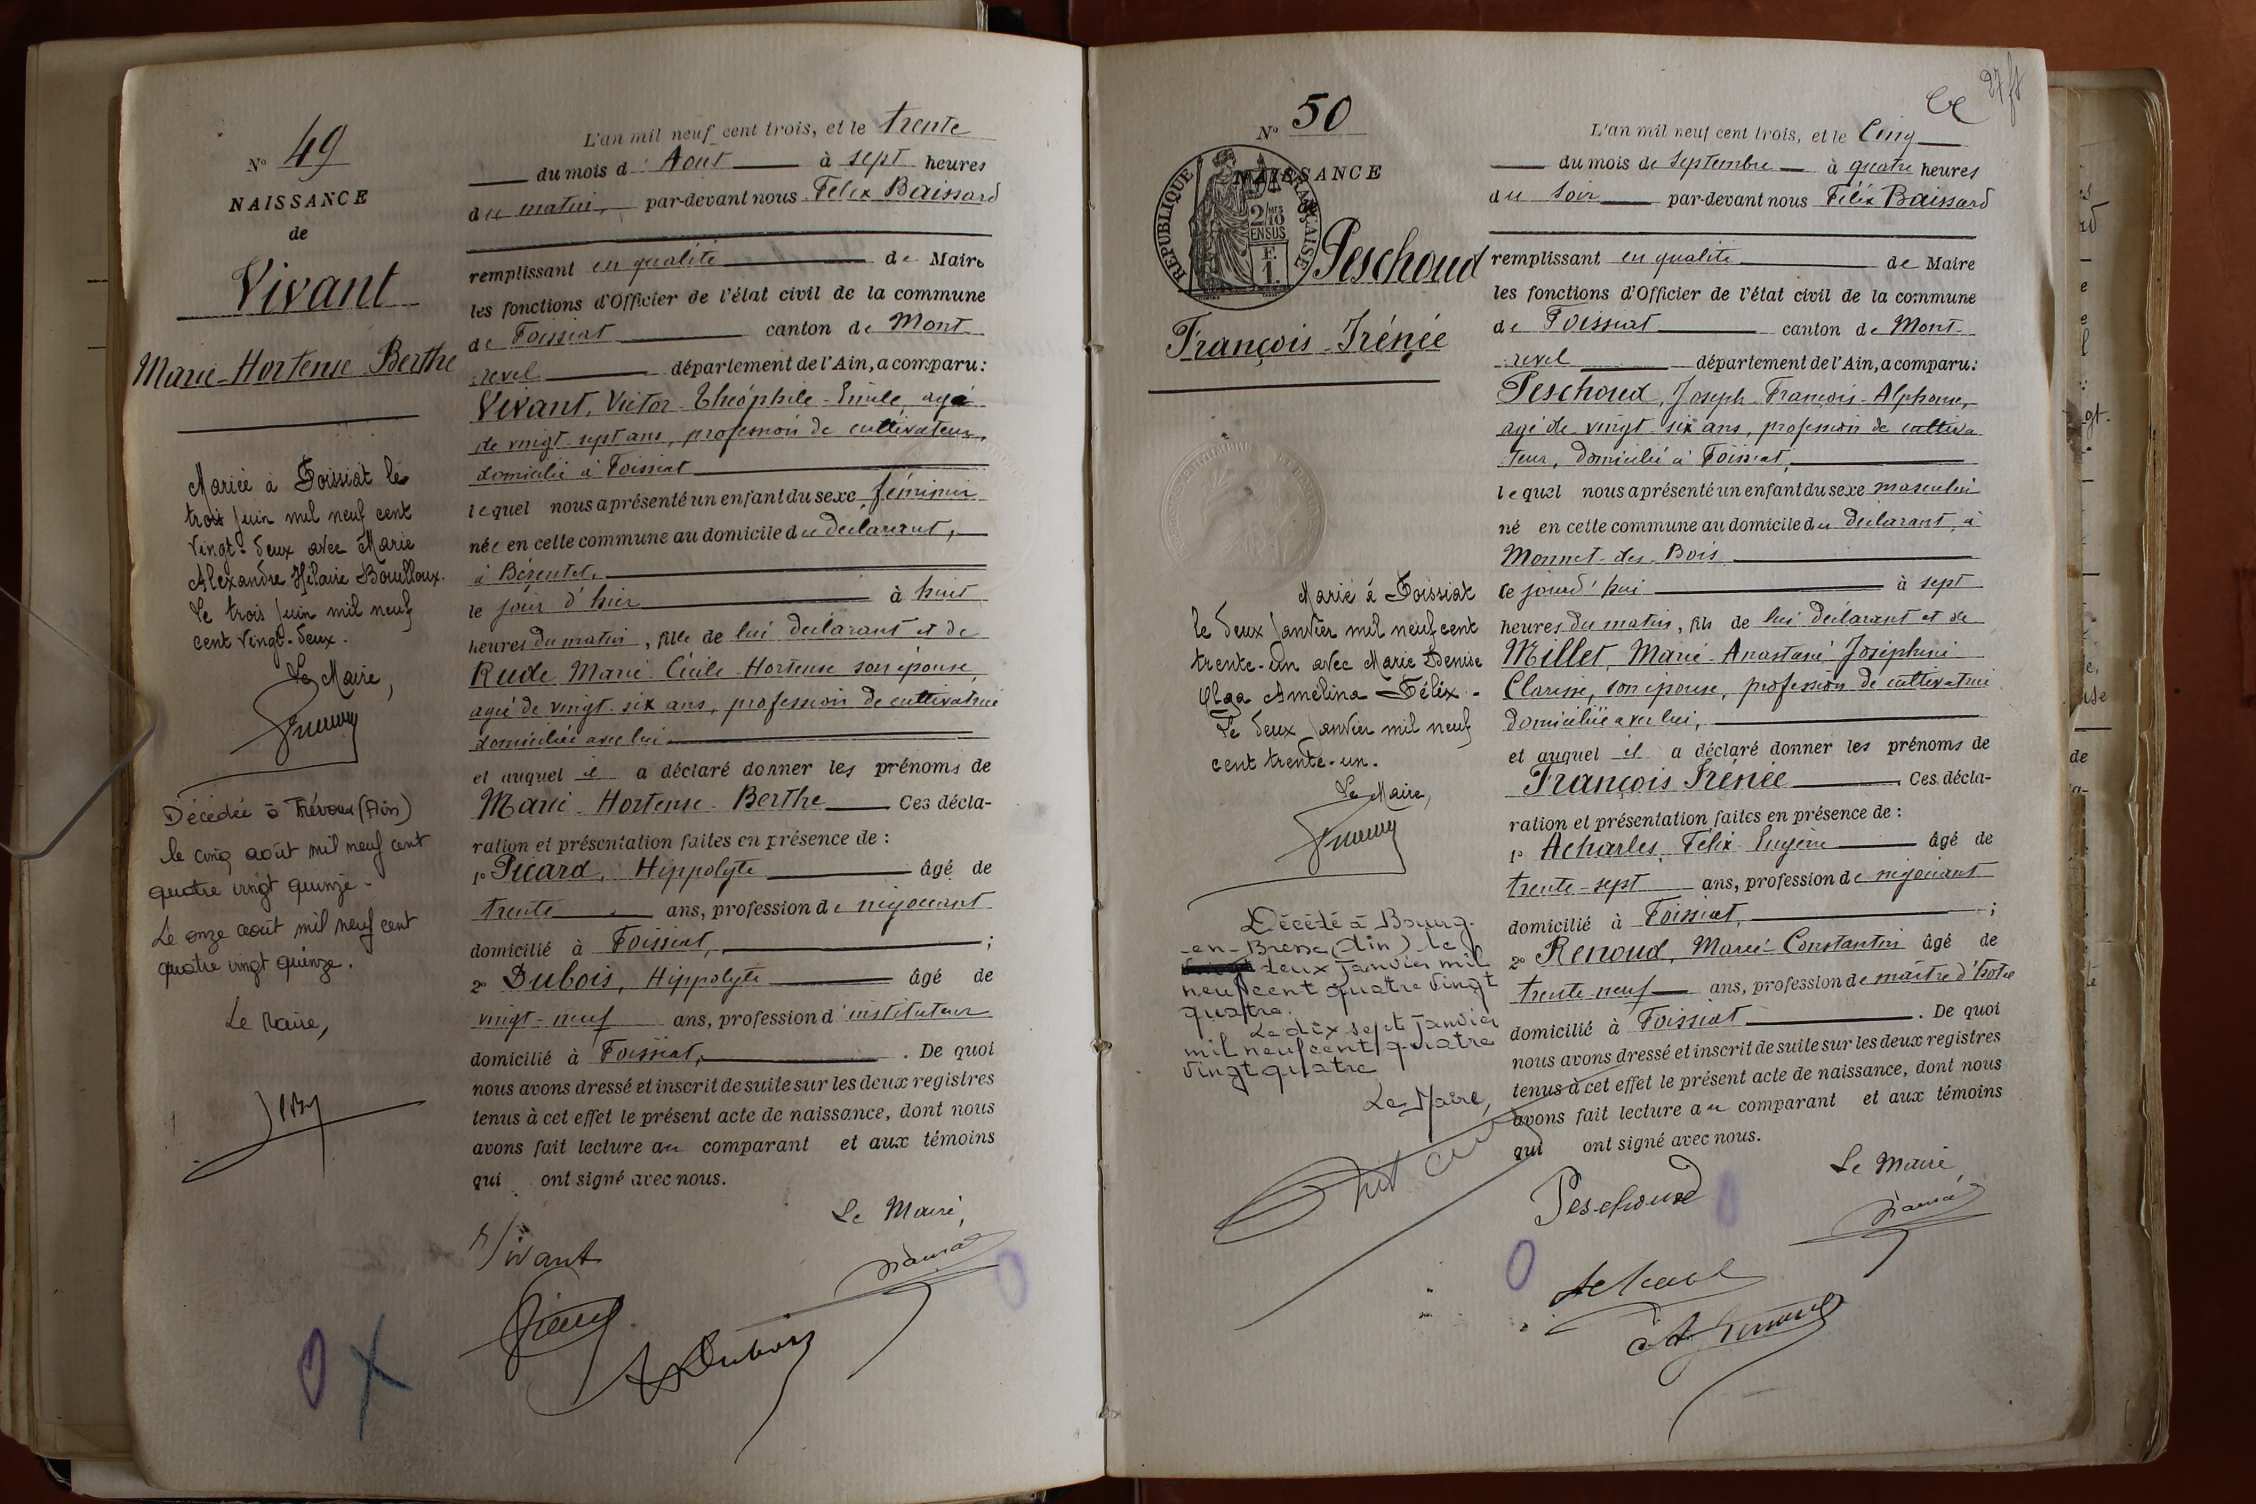 N° 49
NAISSANCE
de
Vivant
Marie-Hortense-Berthe
Mariée à Foissiat le
trois Juin mil neuf cent
vingt-deux avec Marie
Alexandre Hilaire Bouilloux.
Le trois Juin mil neuf
cent vingt-deux.
Le Maire,
Décédée à Trévoux (Ain)
le cinq août mil neuf cent
quatre vingt quinze -
Le onze août mil neuf cent
quatre vingt quinze.
Le Maire,
L'an mil neuf cent trois, et le trente
du mois d'Août à sept heures
du matin, par-devant nous Félix Baissard
remplissant en qualité de Maire
les fonctions d'Officier de l'état civil de la commune
de Foissiat canton de Mont
revel département de l'Ain, a comparu:
Vivant, Victor-Théophile-Emile, agé
de vingt-sept ans, profession de cultivateur,
domicilié à Foissiat
lequel nous a présenté un enfant du sexe féminin
née en cette commune au domicile du déclarant,
à Bésentet,
le jour d'hier à huit
heures du matin, fille de lui déclarant et de
Rude Marie Cécile Hortense son épouse,
agée de vingt-six ans, profession de cultivatrice
domiciliée avec lui
et auquel il a déclaré donner les prénoms de
Marie-Hortense-Berthe Ces décla-
ration et présentation faites en présence de :
1° Picard, Hippolyte âgé de
trente ans, profession de négociant
domicilié à Foissiat, ;
2° Dubois, Hippolyte âgé de
vingt-neuf ans, profession d'instituteur
domicilié à Foissiat, . De quoi
nous avons dressé et inscrit de suite sur les deux registres
tenus à cet effet le présent acte de naissance, dont nous
avons fait lecture au comparant et aux témoins
qui ont signé avec nous.
Le Maire,
Vivant
Dubois
27
N° 50
NAISSANCE
de
REPUBLIQUE FRANÇAISE
2/10 EN SUS
F.
1.
Peschoud
François-Irénée
Marié à Foissiat
le deux Janvier mil neuf cent
trente-un avec Marie Denise
Olga Amélina Félix -
Le deux Janvier mil neuf
cent trente-un.
Le Maire,
Décédé à Bourg-
-en-Bresse (Ain) le
deux Janvier mil
neuf cent quatre vingt
quatre.
Le dix sept Janvier
mil neuf cent quatre
vingt quatre
Le Maire,
L'an mil neuf cent trois, et le Cinq
du mois de septembre à quatre heures
du soir par-devant nous Félix Baissard
remplissant en qualité de Maire
les fonctions d'Officier de l'état civil de la commune
de Foissiat canton de Mont
revel département de l'Ain, a comparu:
Peschoud, Joseph-François-Alphonse,
agé de vingt-six ans, profession de cultiva
teur, domicilié à Foissiat,
lequel nous a présenté un enfant du sexe masculin
né en cette commune au domicile du déclarant, à
Monnet-des-Bois
ce jourd'hui à sept
heures du matin, fils de lui déclarant et de
Millet, Marie-Anastasie Joséphine
Clarisse, son épouse, profession de cultivatrice
domiciliée avec lui,
et auquel il a déclaré donner les prénoms de
François Irénée Ces décla-
ration et présentation faites en présence de :
1° Acharles, Félix-Eugène âgé de
trente-sept ans, profession de négociant
domicilié à Foissiat, ;
2° Renoud, Marie-Constantin âgé de
trente-neuf ans, profession de maître d'hôtel
domicilié à Foissiat . De quoi
nous avons dressé et inscrit de suite sur les deux registres
tenus à cet effet le présent acte de naissance, dont nous
avons fait lecture au comparant et aux témoins
qui ont signé avec nous.
Le Maire,
Peschoud